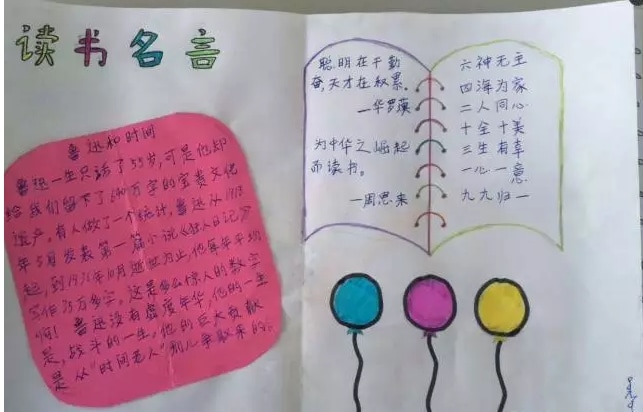 读书名言
鲁迅和时间
鲁迅一生只活了55岁,可是他却
给我们留下了640万字的宝贵文化
遗产。有人做了一个统计,鲁迅从1918
年5月发表第一篇小说《狂人日记》
起,到1936年10月逝世为止,他每年平均
写作35万多字。这是多么惊人的数字
啊!鲁迅没有虚度年华,他的一生
是,战斗的一生,他的巨大贡献
是从“时间老人”那儿争取来的。
聪明在于勤
奋,天才在积累。
—华罗庚
为中华之崛起
而读书。
—周恩来
六神无主
四海为家
二人同心
十全十美
三生有幸
一心一意
九九归一